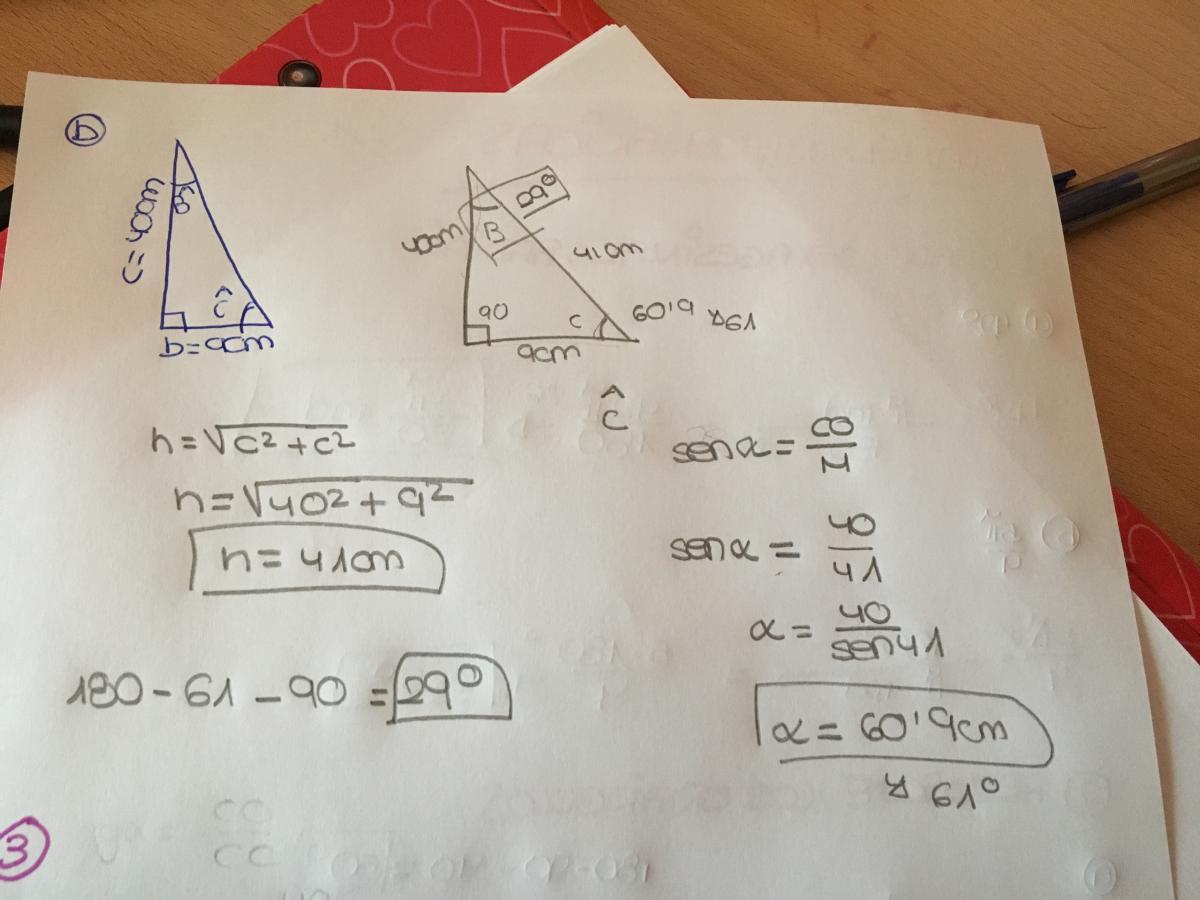 a
c=40cm
Ĉ
b=9cm
29º
40cm
B
41cm
90
C
60'9 ≈ 61º
9cm
h=√c²+c²
h=√40²+9²
h=41cm
180-61-90=29º
Ĉ
sen α= co/H
sen α= 40/41
α= 40/sen41
α=60'9cm
≈ 61º
3